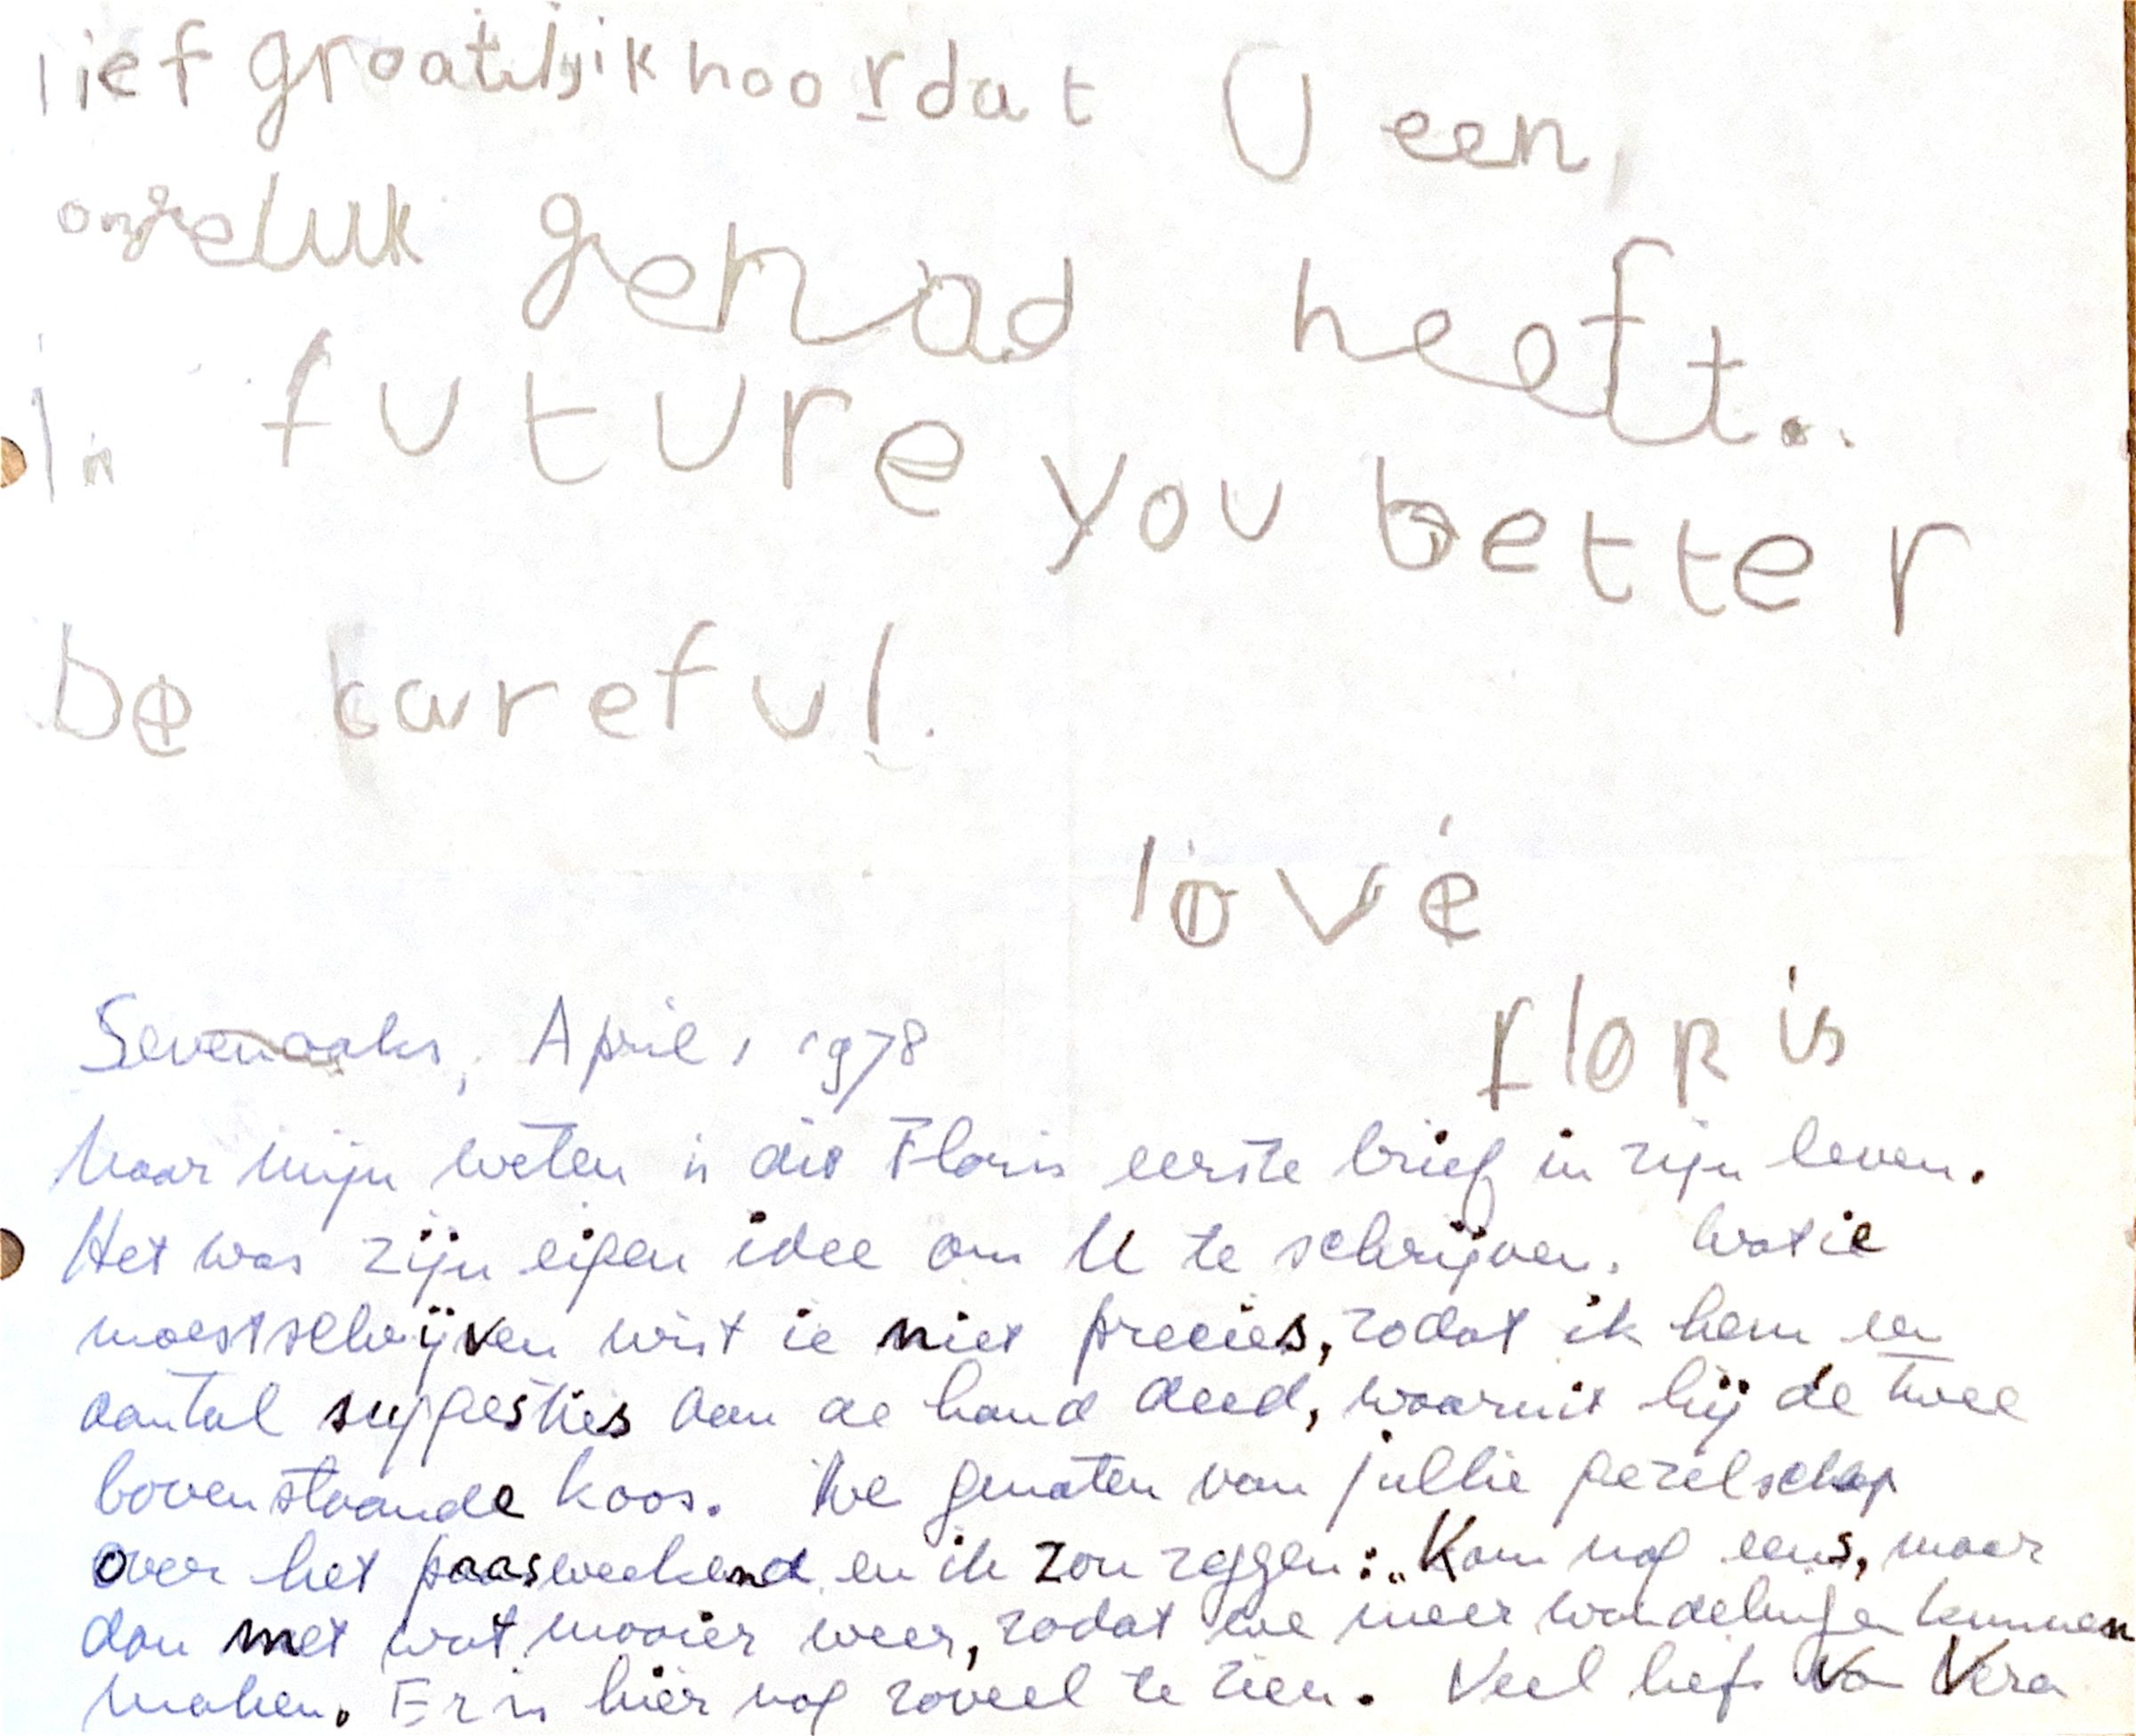 lief groatelyik hoor dat U een
ongeluk gehad heeft..
In future you better
be careful.
love
floris
Sevenoaks, April, 1978
Naar mijn weten is dit Floris eerste brief in zijn leven.
Het was zijn eigen idee om U te schrijven. Wat ie
moest schrijven wist ie niet precies, zodat ik hem een
aantal suggesties aan de hand deed, waaruit hij de twee
bovenstaande koos. We genoten van jullie gezelschap
over het paasweekend en ik zou zeggen: „Kom nog eens, maar
dan met wat mooier weer, zodat we meer wandelingen kunnen
maken. Er is hier nog zoveel te zien. Veel liefs Va Vera